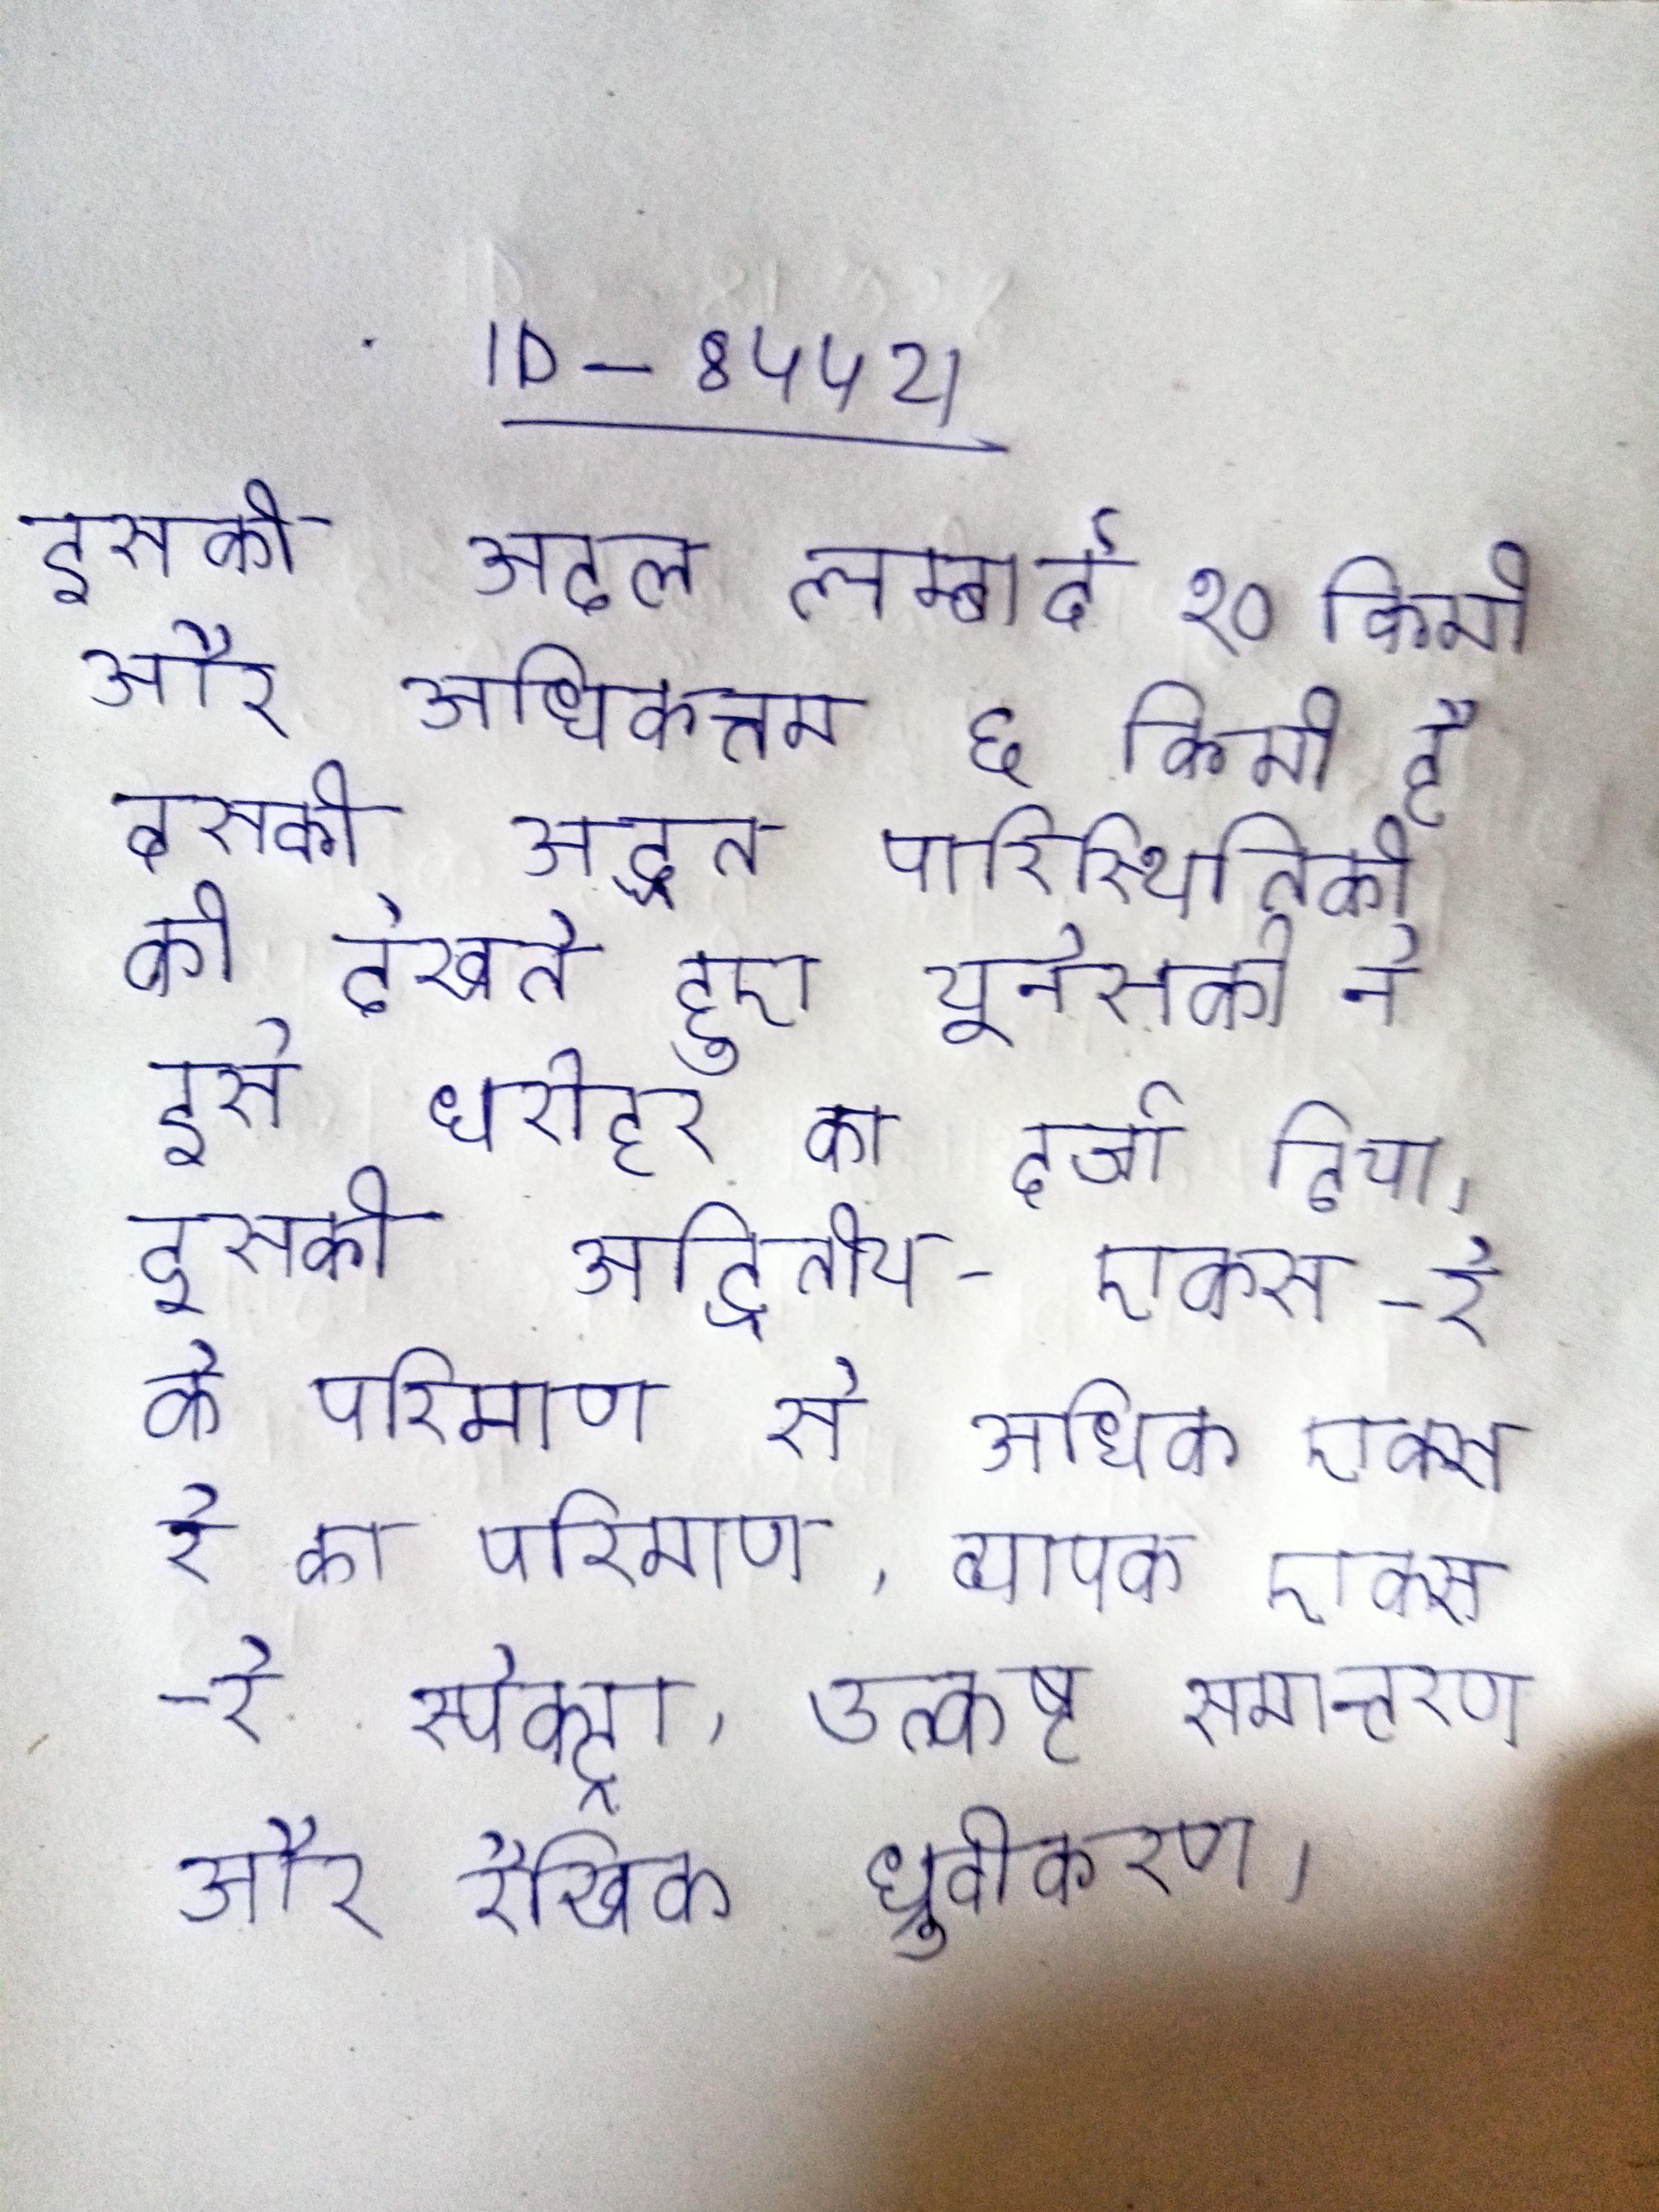 ID - 84421
इसकी अदल लम्बाई १० किमी
और अधिकत्तम ६ किमी है
इसकी अद्भुत पारिस्थितिकी
को देखते हुए यूनेसको ने
इसे धरोहर का दर्जा दिया,
इसकी अद्वितीय - एकस - रे
के परिमाण से अधिक एक्स
रे का परिमाण, व्यापक एक्स
- रे स्पेक्ट्रा, उत्कष्ट समान्तरण
और रैखिक ध्रुवीकरण,